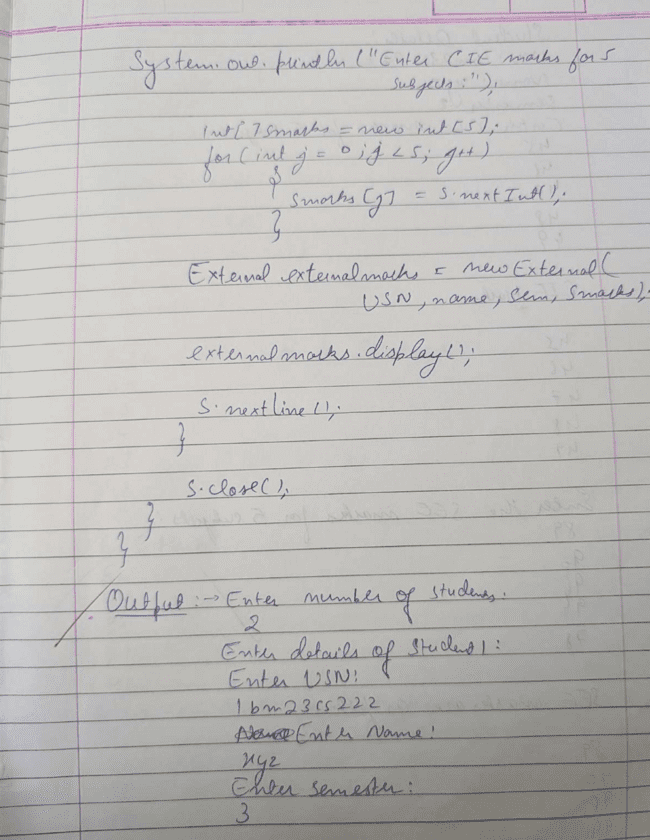 System.out.println ("Enter CIE marks for 5
subjects:");
int[] smarks = new int[5];
for (int j = 0; j < 5; j++)
{
smarks[j] = s.nextInt();
}
External externalmarks = new External(
USN, name, sem, smarks);
externalmarks.display();
s.nextLine();
}
s.close();
}
}
Output :→ Enter number of students:
2
Enter details of Student 1:
Enter USN:
1bm23cs222
Enter Name:
xyz
Enter semester:
3